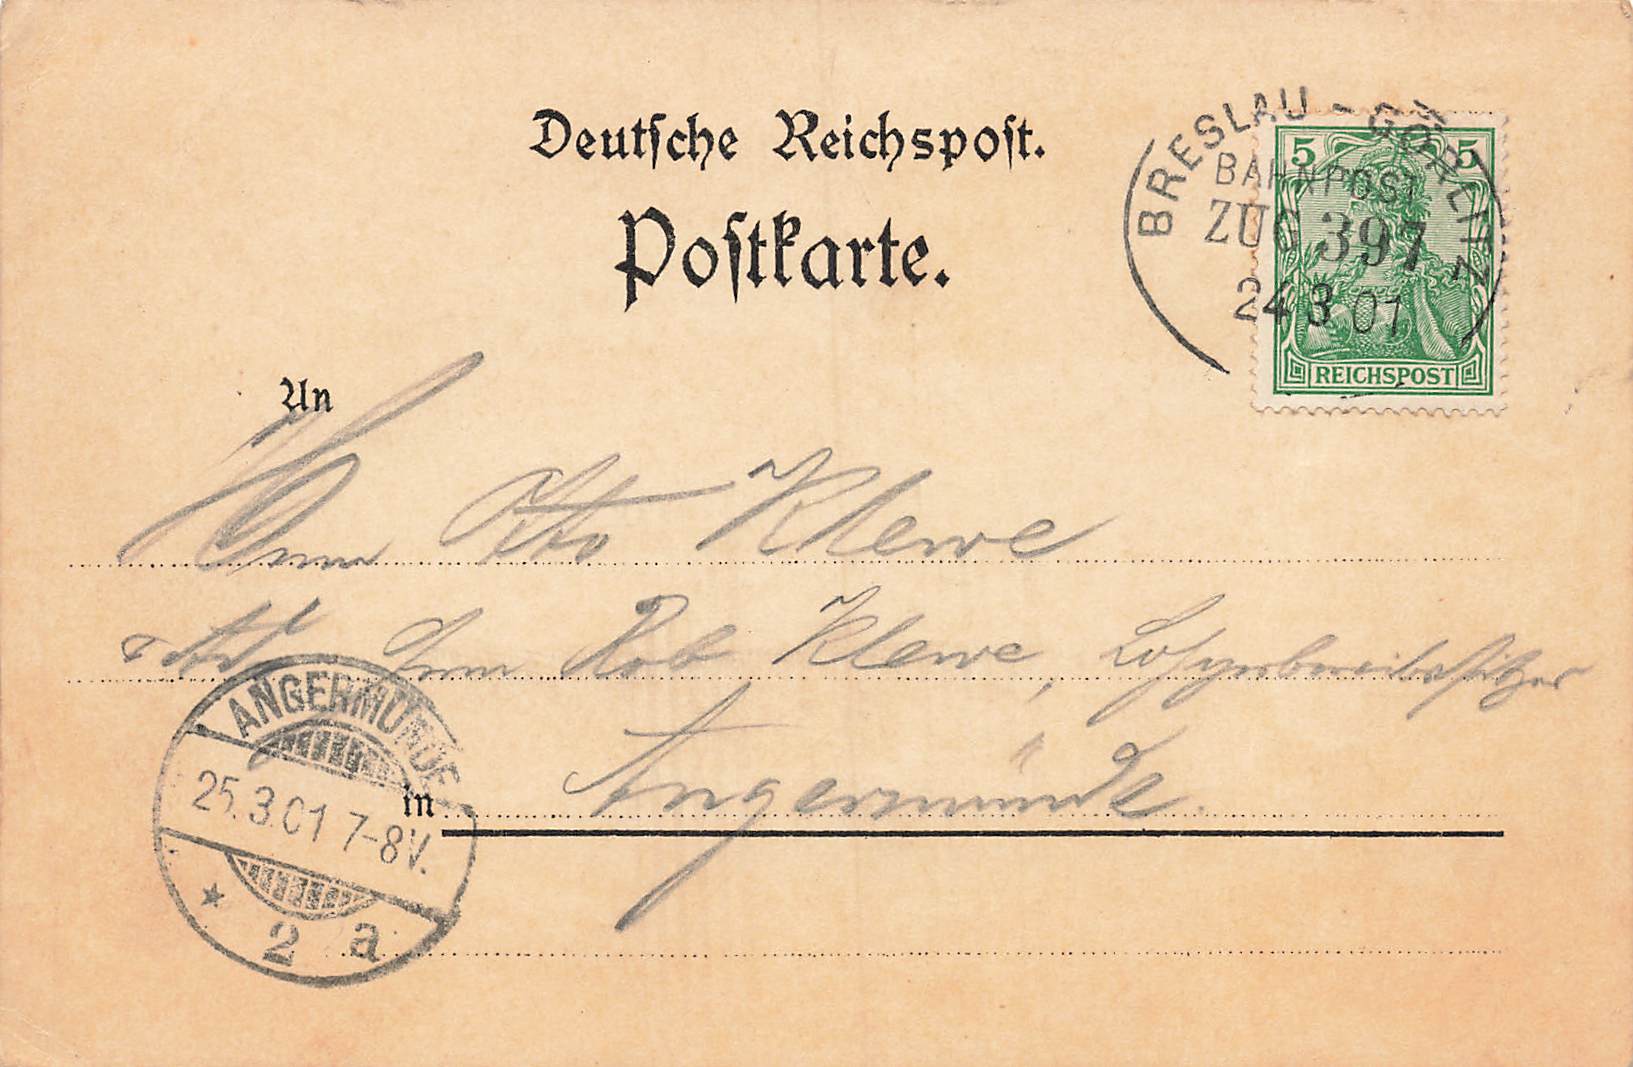 Deutsche Reichspost.
Postkarte.
BRESLAU - GÖRLITZ
BAHNPOST
ZUG 397
24 3 01
5 5
REICHSPOST
An
Herrn Otto Klewe
Herrn Rob Klewe,
in Angermünde.
ANGERMÜNDE
25.3.01 7-8V.
* 2 a